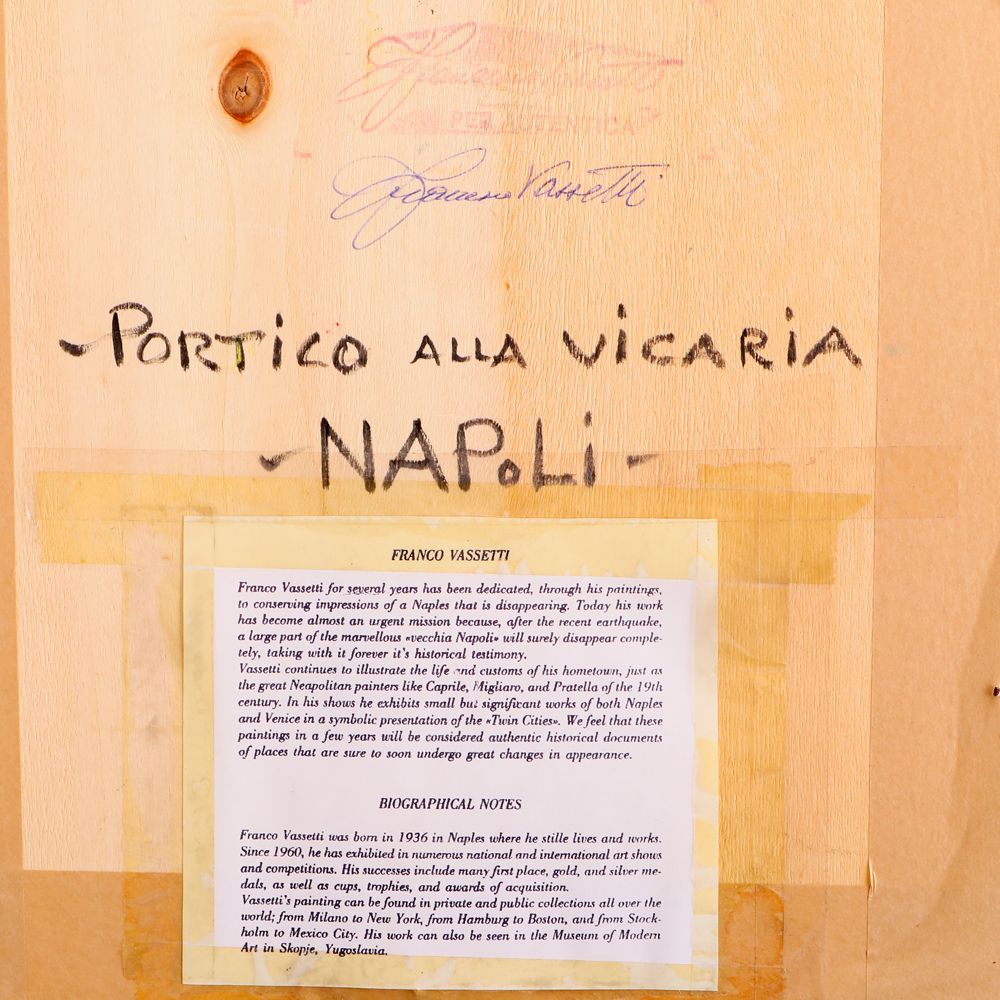 PER AUTENTICA
Franco Vassetti
- PORTICO ALLA VICARIA
- NAPOLI -
FRANCO VASSETTI
Franco Vassetti for several years has been dedicated, through his paintings,
to conserving impressions of a Naples that is disappearing. Today his work
has become almost an urgent mission because, after the recent earthquake,
a large part of the marvellous «vecchia Napoli» will surely disappear comple-
tely, taking with it forever it's historical testimony.
Vassetti continues to illustrate the life and customs of his hometown, just as
the great Neapolitan painters like Caprile, Migliaro, and Pratella of the 19th
century. In his shows he exhibits small but significant works of both Naples
and Venice in a symbolic presentation of the «Twin Cities». We feel that these
paintings in a few years will be considered authentic historical documents
of places that are sure to soon undergo great changes in appearance.
BIOGRAPHICAL NOTES
Franco Vassetti was born in 1936 in Naples where he stille lives and works.
Since 1960, he has exhibited in numerous national and international art shows
and competitions. His successes include many first place, gold, and silver me-
dals, as well as cups, trophies, and awards of acquisition.
Vassetti's painting can be found in private and public collections all over the
world; from Milano to New York, from Hamburg to Boston, and from Stock-
holm to Mexico City. His work can also be seen in the Museum of Modern
Art in Skopje, Yugoslavia.